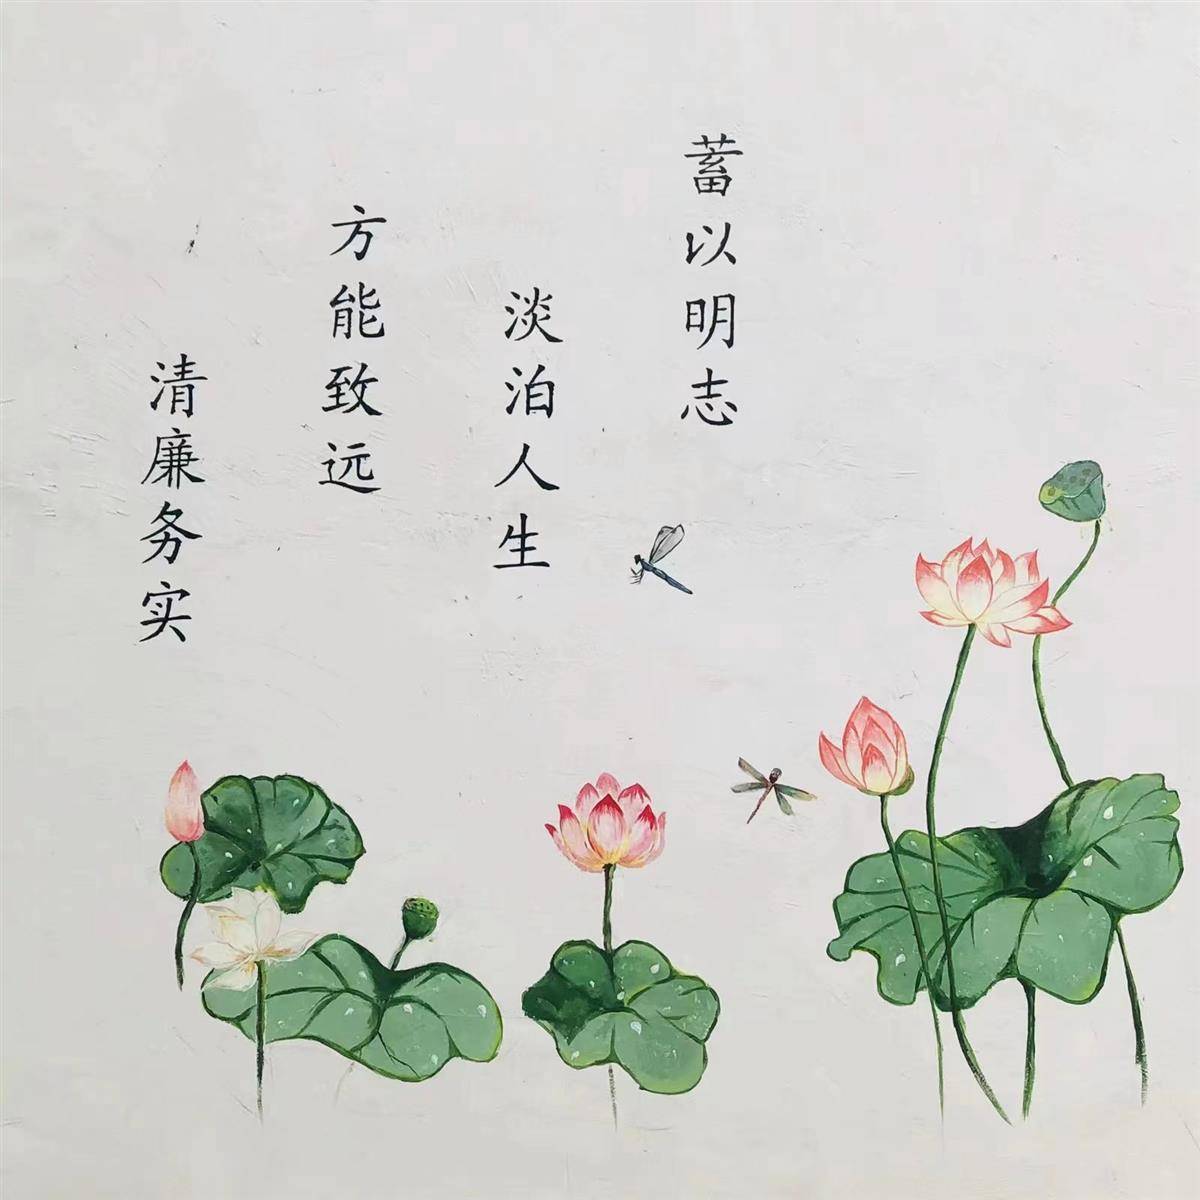 蓄以明志
淡泊人生
方能致远
清廉务实